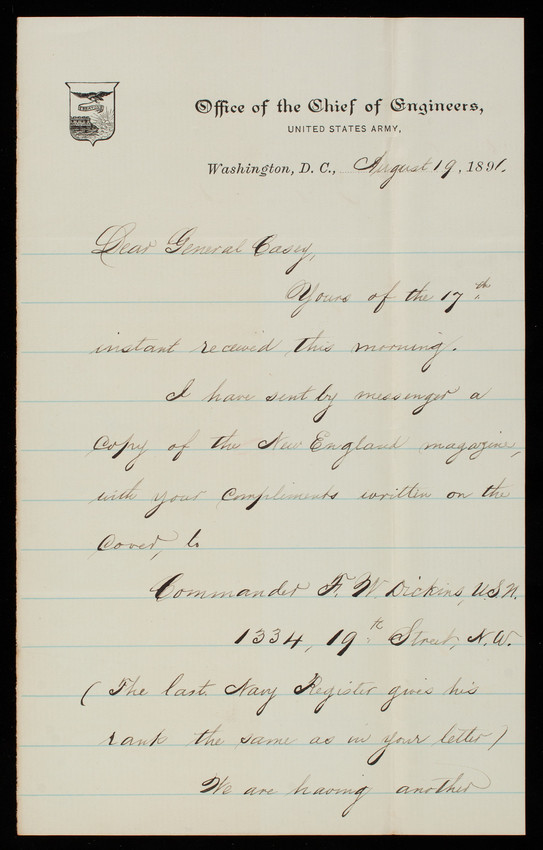 Office of the Chief of Engineers,
UNITED STATES ARMY,
Washington, D. C., August 19, 1891.
Dear General Casey,
Yours of the 17th
instant received this morning.
I have sent by messenger a
copy of the New England magazine,
with your compliments written on the
cover, to
Commander F. W. Dickins, U.S.N.
1334, 19th Street, N.W.
(The last Navy Register gives his
rank the same as in your letter)
We are having another